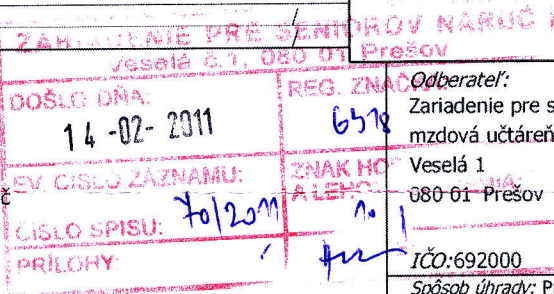 ZARIADENIE PRE SENIOROV NÁRUČ
Veselá č.1, 080 01 Prešov
DOŠLO DŇA:
14 -02- 2011
REG. ZNAČKA:
6518
EV. ČÍSLO ZÁZNAMU:
ZNAK HO
A LEHO
ČÍSLO SPISU: 70/2011
10
PRÍLOHY:
č
Odberateľ:
Zariadenie pre s
mzdová učtáreň
Veselá 1
080 01 Prešov
IČO:692000
Spôsob úhrady: P